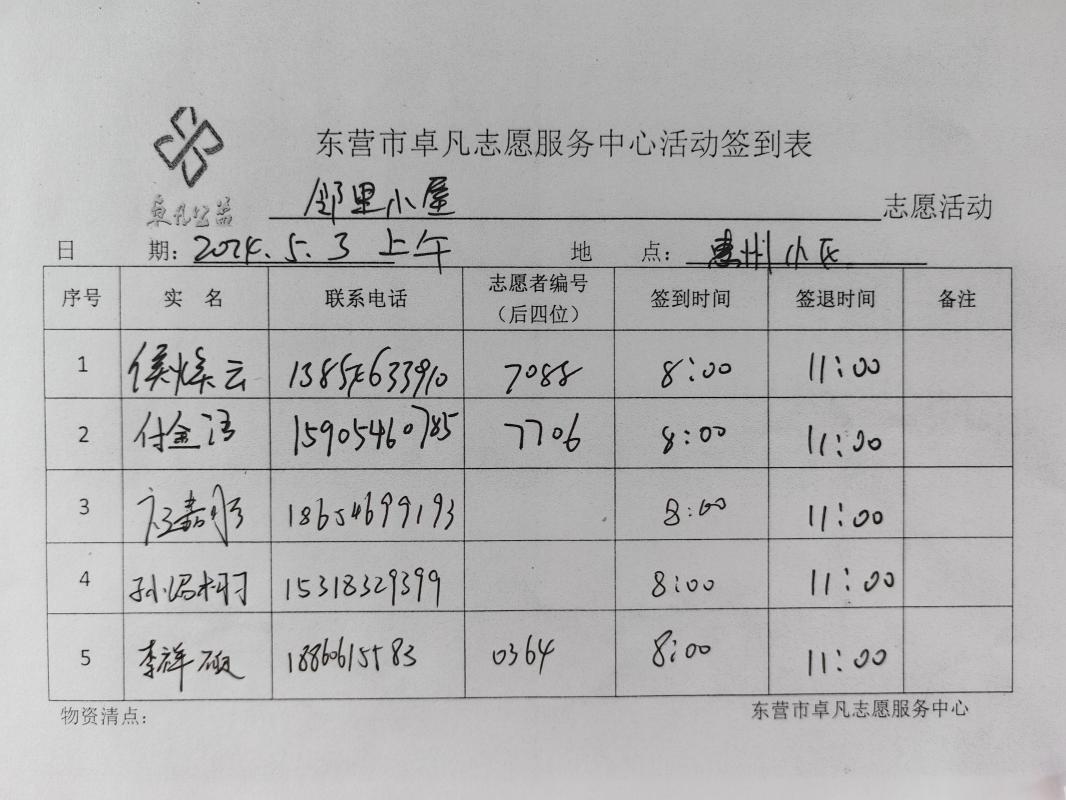 东营市卓凡志愿服务中心活动签到表
卓凡公益
邻里小屋 志愿活动
日 期：2024.5.3 上午 地 点：惠州小区
序号 实 名 联系电话 志愿者编号（后四位） 签到时间 签退时间 备注
1 侯焕云 13854633910 7088 8:00 11:00
2 付金 15905460785 7706 8:00 11:00
3 18654699193 8:00 11:00
4 孙 15318329399 8:00 11:00
5 李祥 18860615583 0364 8:00 11:00
物资清点： 东营市卓凡志愿服务中心